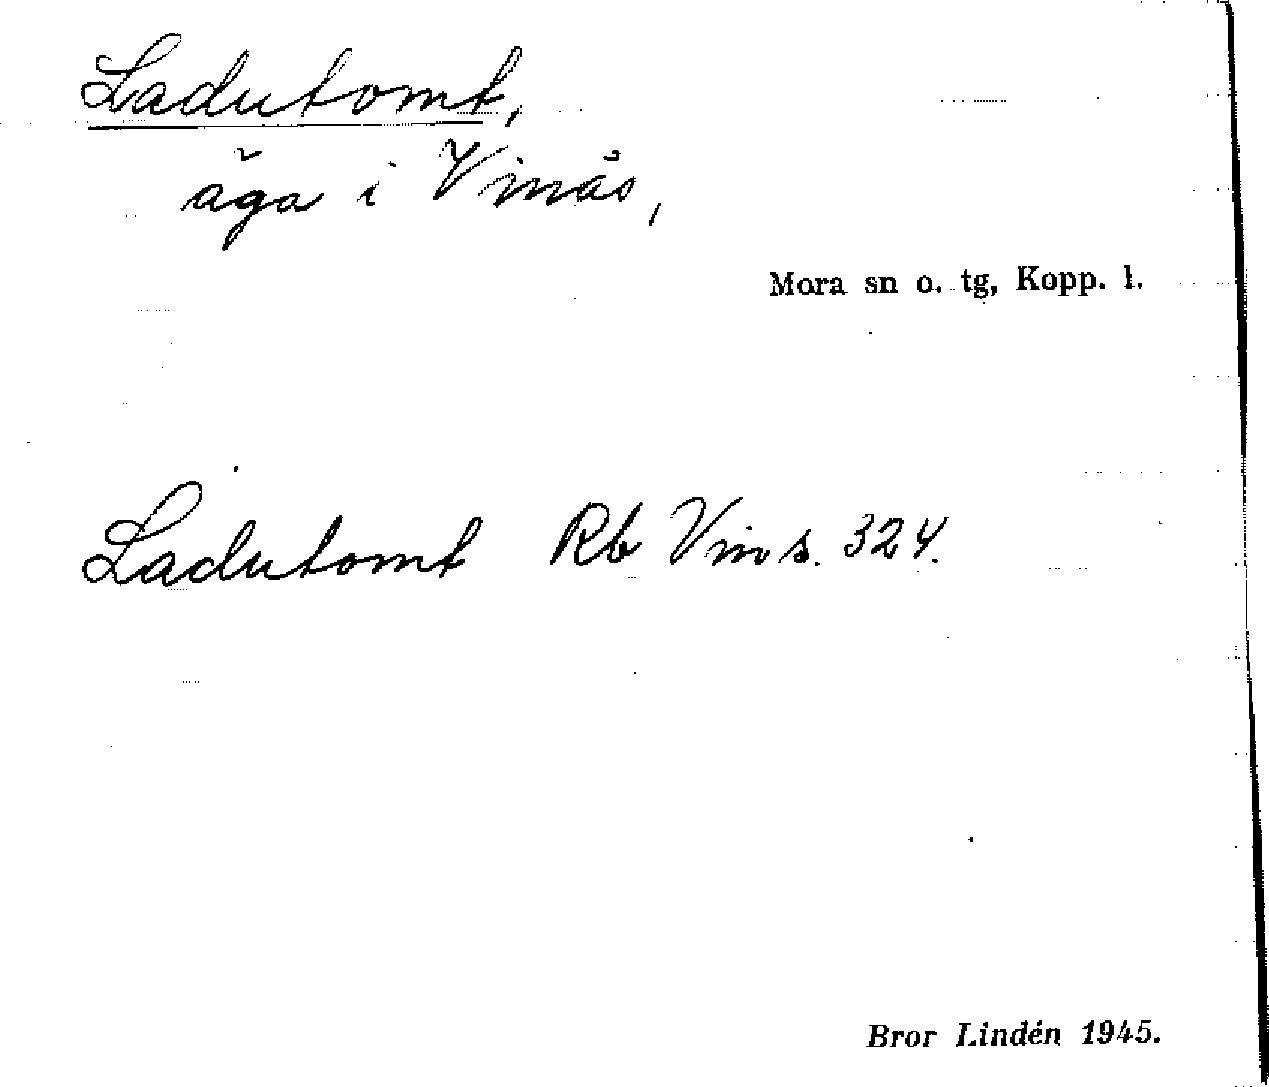 Ladutomt,
äga i Vinäs,
Mora sn o. tg, Kopp. l.
Ladutomt Rb Vins. 324.
Bror Lindén 1945.